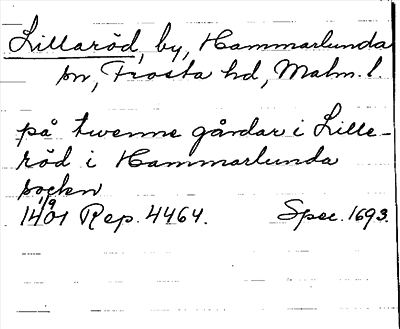 Lillaröd, by, Hammarlunda
sn, Frosta hd, Malm. l.
på twenne gårdar i Lille-
röd i Hammarlunda
sockn
14/9 01 Rep. 4464. Spec. 1693.